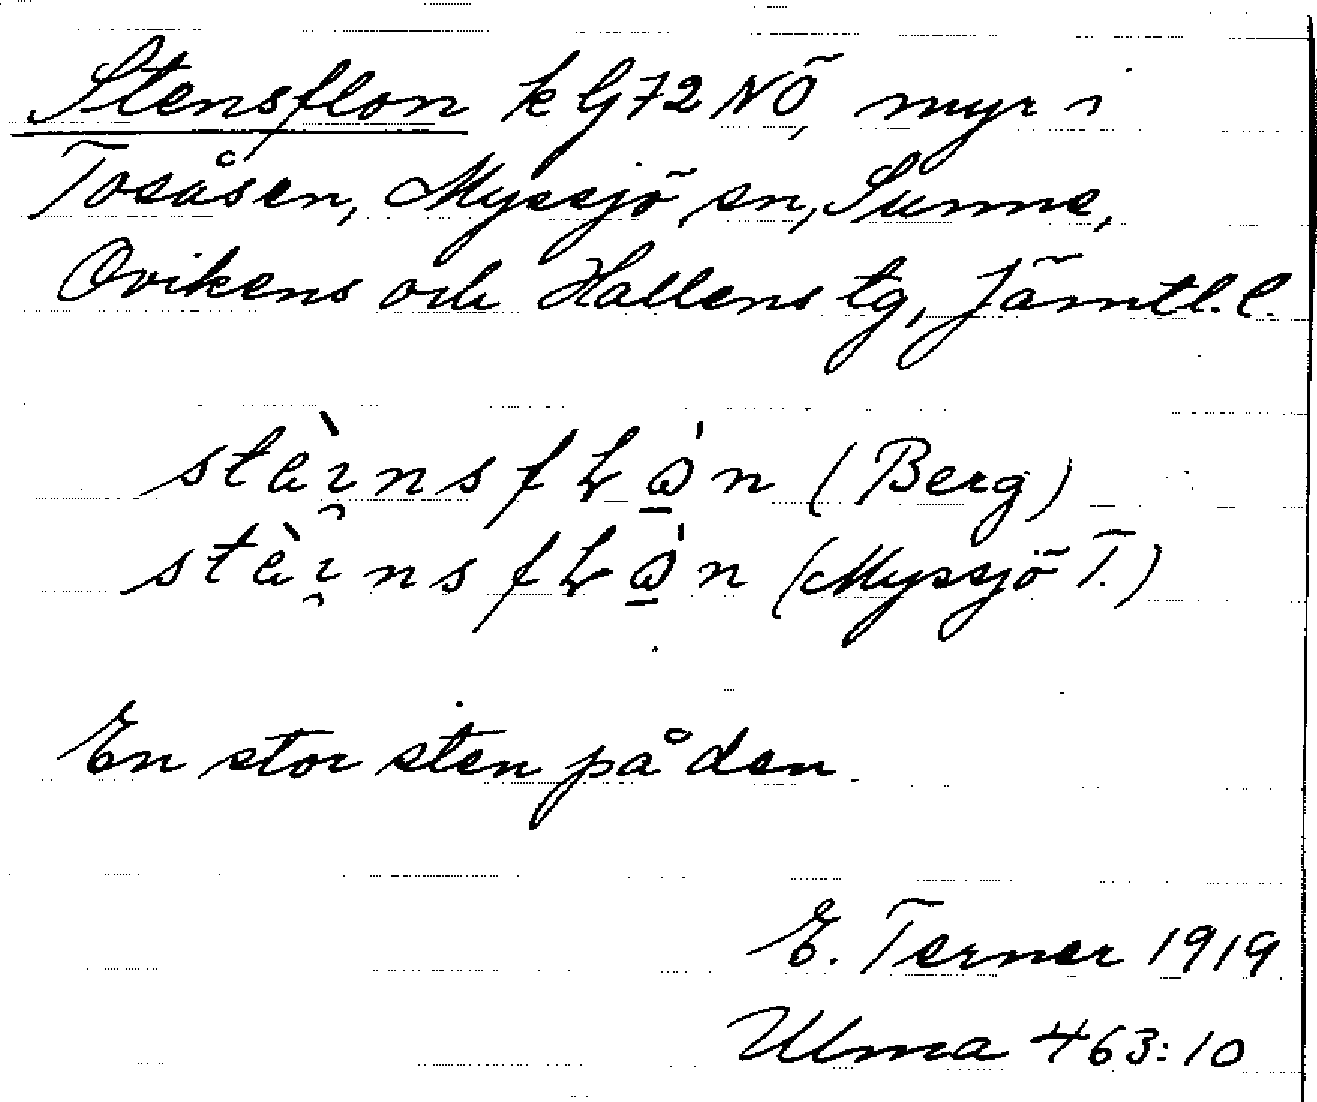 Stensflon k G72 NÖ, myr i
Tosåsen, Myssjö sn, Sunne,
Ovikens och Hallens tg, Jämtl. l.
(Berg)
(Myssjö T.)
En stor sten på den.
E. Terner 1919
Ulma 463:10